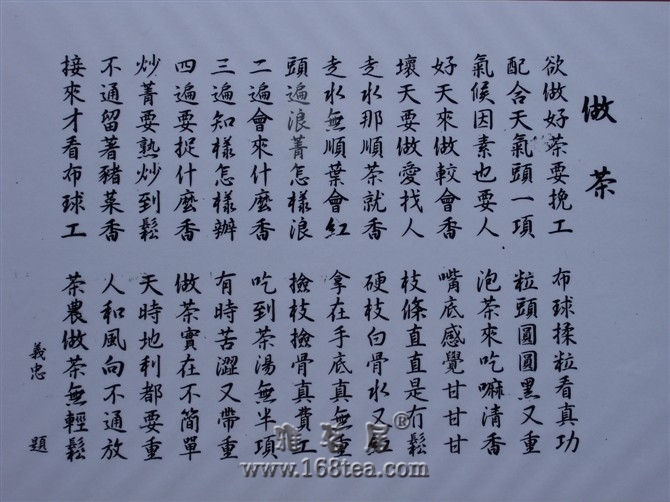 做茶
欲做好茶要挽工
配合天氣頭一項
氣候因素也要人
好天來做較會香
壞天要做愛找人
走水那順茶就香
走水無順葉會紅
頭遍浪菁怎樣浪
二遍會來什麼香
三遍知樣怎樣辦
四遍要捉什麼香
炒菁要熟炒到鬆
不通留著豬菜香
接來才看布球工
布球揉粒看真功
粒頭圓圓黑又重
泡茶來吃嘛清香
嘴底感覺甘甘甘
枝條直直是冇鬆
硬枝白骨水又紅
拿在手底真無重
撿枝撿骨真費工
吃到茶湯無半項
有時苦澀又帶重
做茶實在不簡單
天時地利都要重
人和風向不通放
茶農做茶無輕鬆
義忠 題
雅茗居®
www.168tea.com